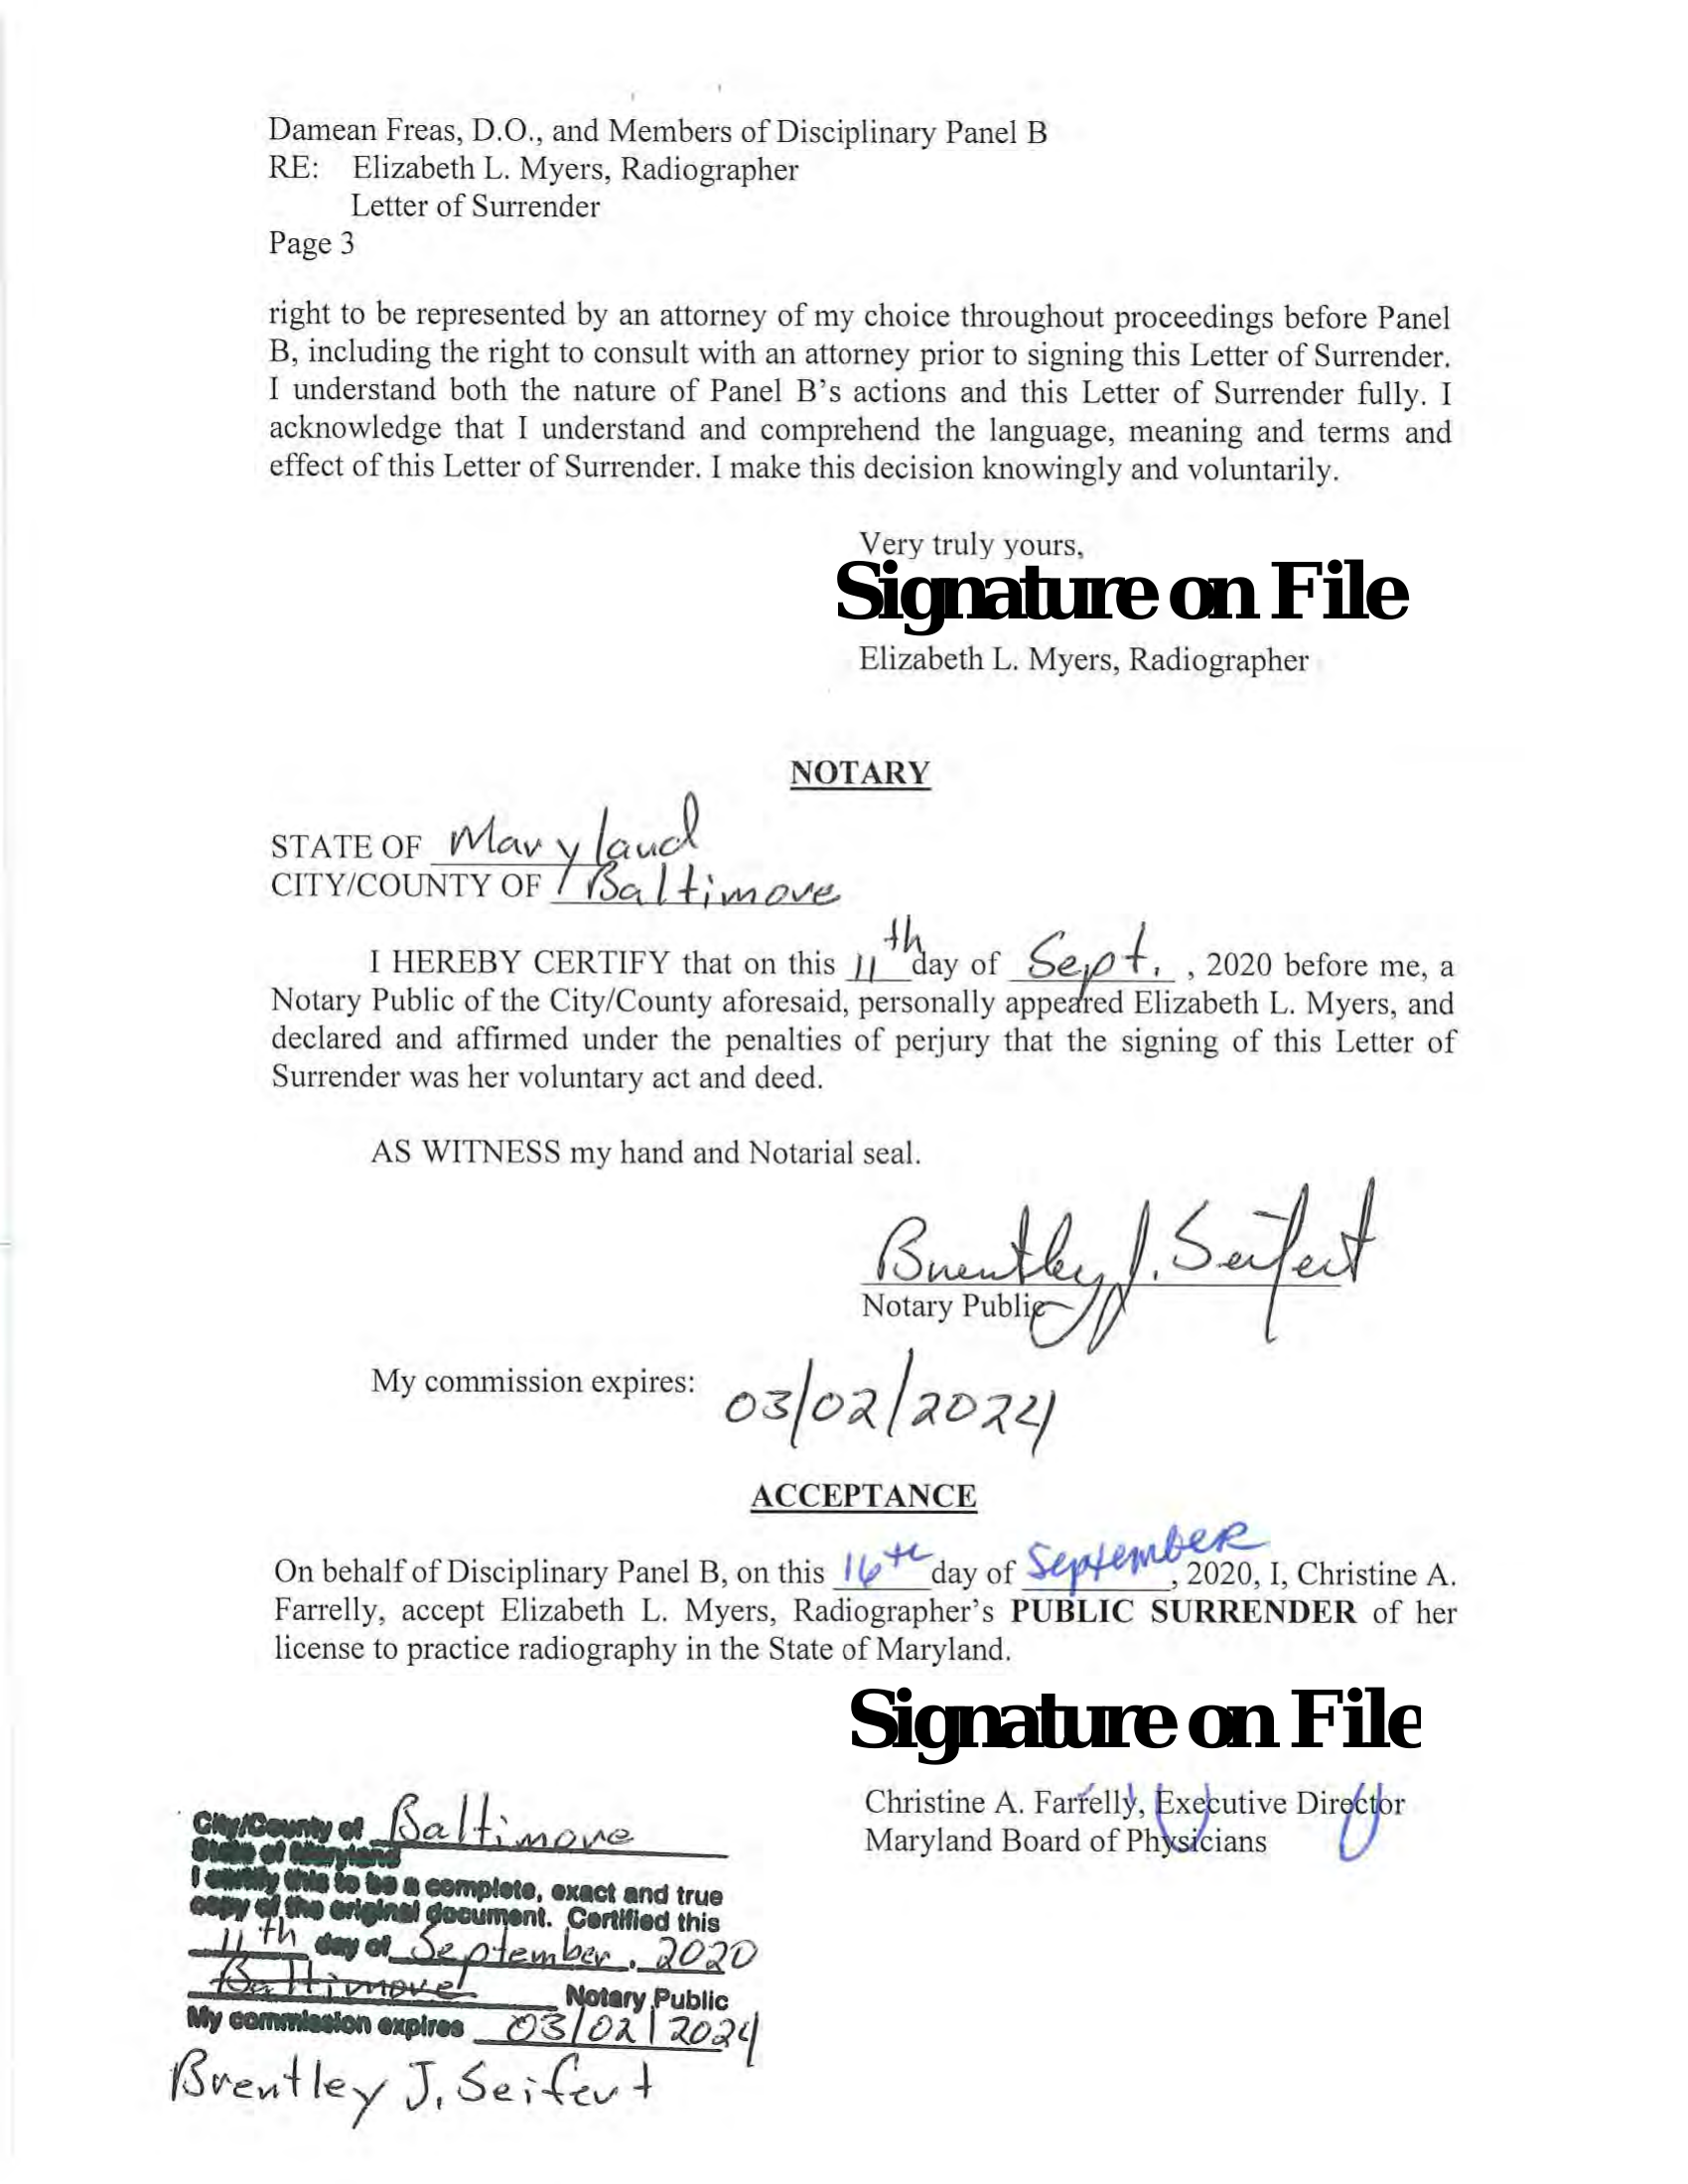 Damean Freas, D.O., and Members of Disciplinary Panel B
RE: Elizabeth L. Myers, Radiographer
Letter of Surrender
Page 3
right to be represented by an attorney of my choice throughout proceedings before Panel
B, including the right to consult with an attorney prior to signing this Letter of Surrender.
I understand both the nature of Panel B's actions and this Letter of Surrender fully. I
acknowledge that I understand and comprehend the language, meaning and terms and
effect of this Letter of Surrender. I make this decision knowingly and voluntarily.
Very truly yours,
Signature on File
Elizabeth L. Myers, Radiographer
NOTARY
STATE OF Maryland
CITY/COUNTY OF Baltimore
I HEREBY CERTIFY that on this 11th day of Sept. , 2020 before me, a
Notary Public of the City/County aforesaid, personally appeared Elizabeth L. Myers, and
declared and affirmed under the penalties of perjury that the signing of this Letter of
Surrender was her voluntary act and deed.
AS WITNESS my hand and Notarial seal.
Brentley J. Seifert
Notary Public
My commission expires: 03/02/2024
ACCEPTANCE
On behalf of Disciplinary Panel B, on this 16th day of September, 2020, I, Christine A.
Farrelly, accept Elizabeth L. Myers, Radiographer's PUBLIC SURRENDER of her
license to practice radiography in the State of Maryland.
Signature on File
Christine A. Farrelly, Executive Director
Maryland Board of Physicians
City/County of Baltimore
State of Maryland
I certify this to be a complete, exact and true
copy of the original document. Certified this
11th day of September, 2020
Baltimore Notary Public
My commission expires 03/02/2024
Brentley J. Seifert